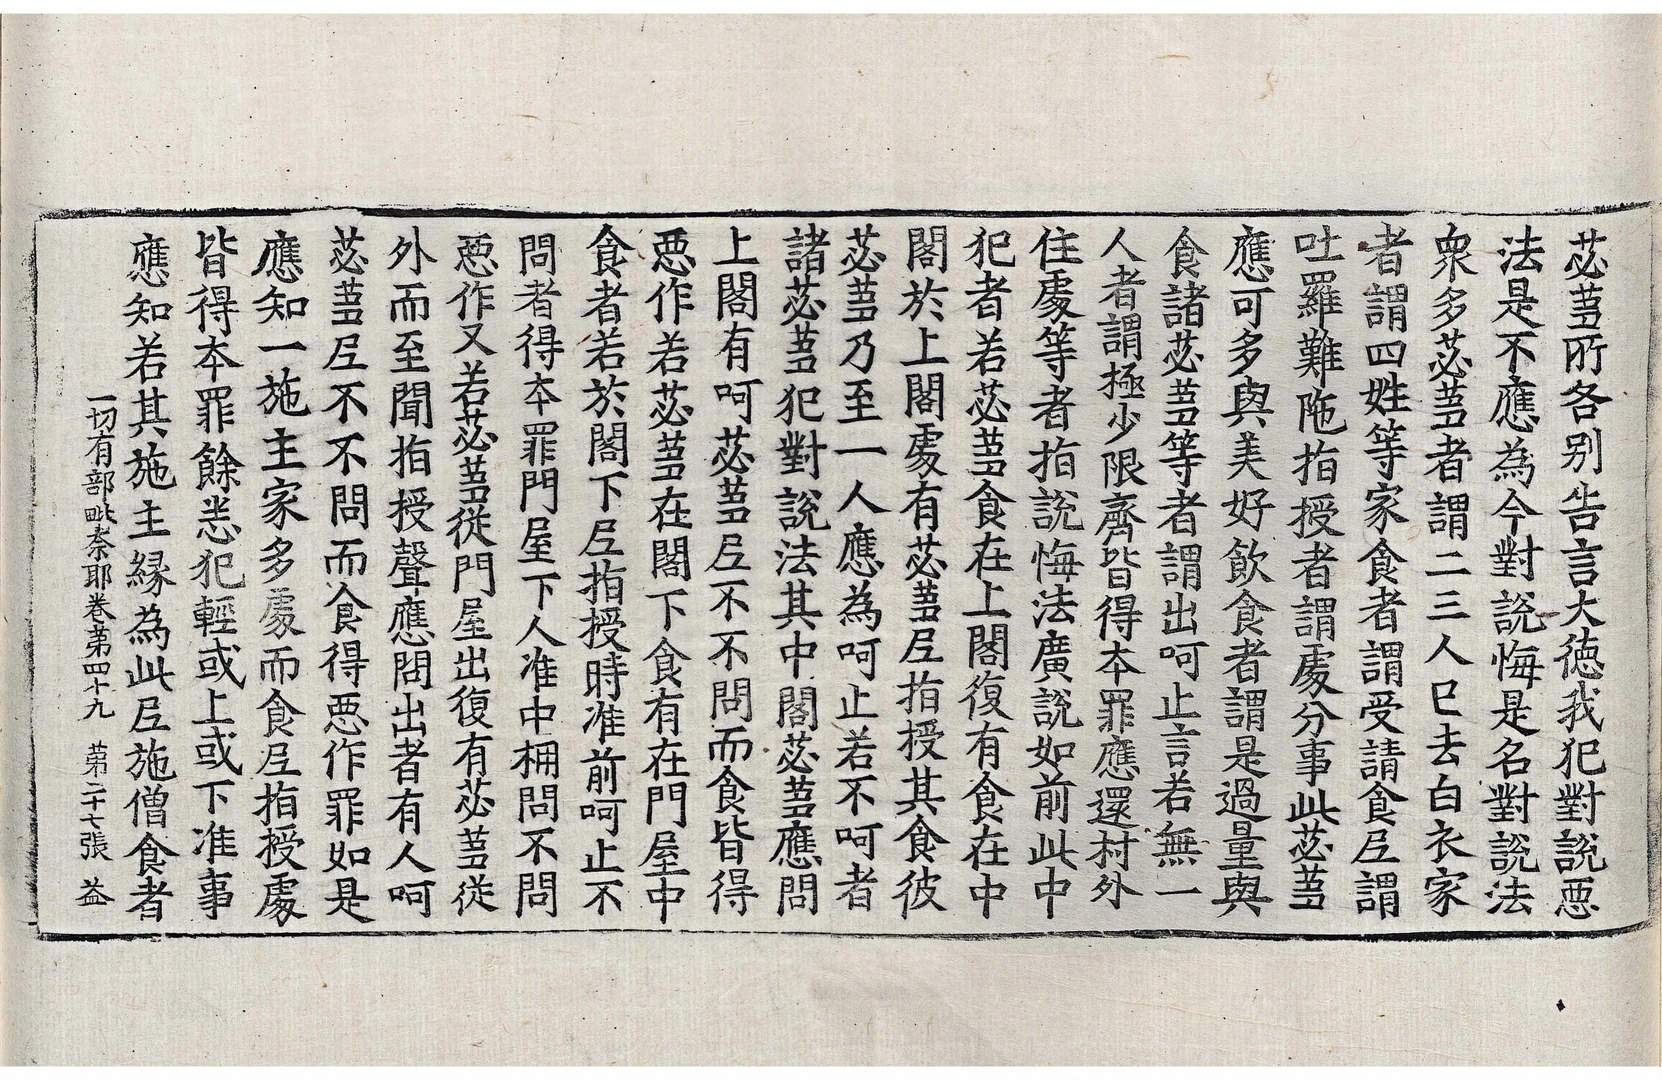 苾蒭所各別告言大德我犯對說惡
法是不應為今對說悔是名對說法
衆多苾蒭者謂二三人已去白衣家
者謂四姓等家食者謂受請食𡰱謂
吐羅難陁指授者謂處分事此苾蒭
應可多與美好飲食者謂是過量與
食諸苾蒭等者謂出呵止言若無一
人者謂極少限齊皆得本罪應還村外
住處等者指說悔法廣說如前此中
犯者若苾蒭食在上閣復有食在中
閣於上閣處有苾蒭𡰱指授其食彼
苾蒭乃至一人應為呵止若不呵者
諸苾蒭犯對說法其中閣苾蒭應問
上閣有呵苾蒭𡰱不不問而食皆得
惡作若苾蒭在閣下食有在門屋中
食者若於閣下𡰱指授時准前呵止不
問者得本罪門屋下人准中棚問不問
惡作又若苾蒭從門屋出復有苾蒭從
外而至聞指授聲應問出者有人呵
苾蒭𡰱不不問而食得惡作罪如是
應知一施主家多處而食𡰱指授處
皆得本罪餘悉犯輕或上或下准事
應知若其施主緣為此𡰱施僧食者
一切有部毗奈耶卷第四十九 第二十七張 益